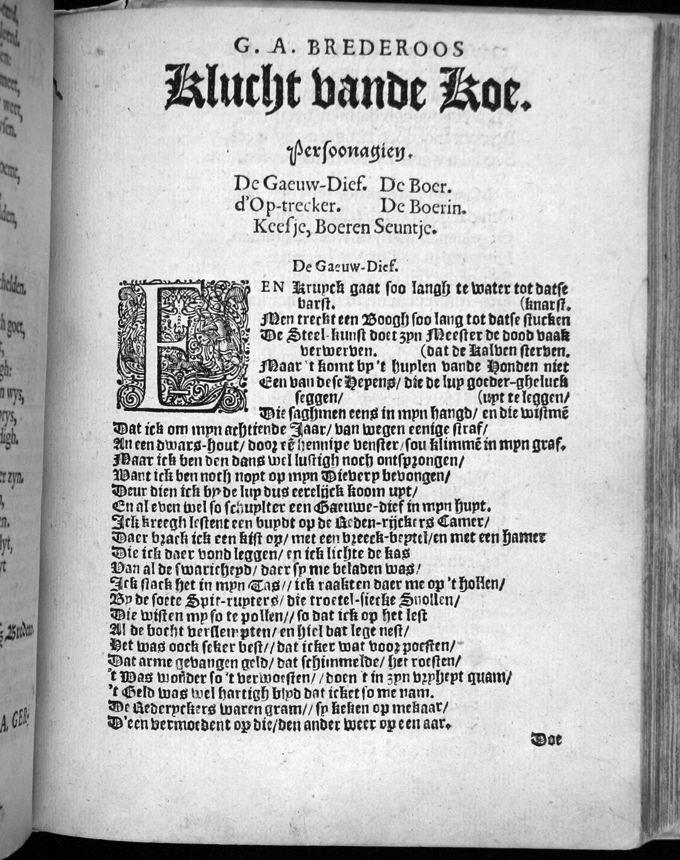 G. A. BREDEROOS
Klucht vande Koe.
Persoonagien.
De Gaeuw-Dief. De Boer.
d'Op-trecker. De Boerin.
Keesje, Boeren Seuntje.
De Gaeuw-Dief.
EEN Kruyck gaat soo langh te water tot datse
barst. (knarst.
Men treckt een Boogh soo lang tot datse stucken
De Steel-kunst doet zyn Meester de dood vaak
verwerven. (dat de Kalven sterven.
Maar 't komt by 't huylen vande Honden niet
Een van dese Heyens/ die de luy goeder-gheluck
seggen/ (uyt te leggen/
Die saghmen eens in myn hangd/ en die wistmē
Dat ick om myn achtiende Jaar/ van wegen eenige straf/
An een dwars-hout/ door eē hennipe venster/ sou klimmē in myn graf.
Maar ick ben den dans wel lustigh noch ontsprongen/
Want ick ben noch noyt op myn Dievery bevongen/
Deur dien ick by de luy dus eerelijck koom uyt/
En al even wel so schuylter een Gaeuwe-dief in myn huyt.
Ick kreegh lestent een buydt op de Reden-rijckers Camer/
Daer brack ick een kist op/ met een breeck-beytel/ en met een hamer
Die ick daer vond leggen/ en ick lichte de kas
Van al de swaricheyd/ daer sy me beladen was/
Ick stack het in myn Tas// ick raakten daer me op 't hollen/
By de soete Spit-ruyters/ die troetel-siecke Snollen/
Die wisten my so te pollen// so dat ick op het lest
Al de bocht verslempten/ en hiel dat lege nest/
Het was oock seker best// dat icker wat voor poesten/
Dat arme gevangen geld/ dat schimmelde/ het roesten/
't Was wonder so 't verwoesten// doen 't in zyn vryheyt quam/
't Geld was wel hartigh blyd dat icket so me nam.
De Rederyckers waren gram// sy keken op mekaar/
D'een vermoedent op die/ den ander weer op een aar.
Doe